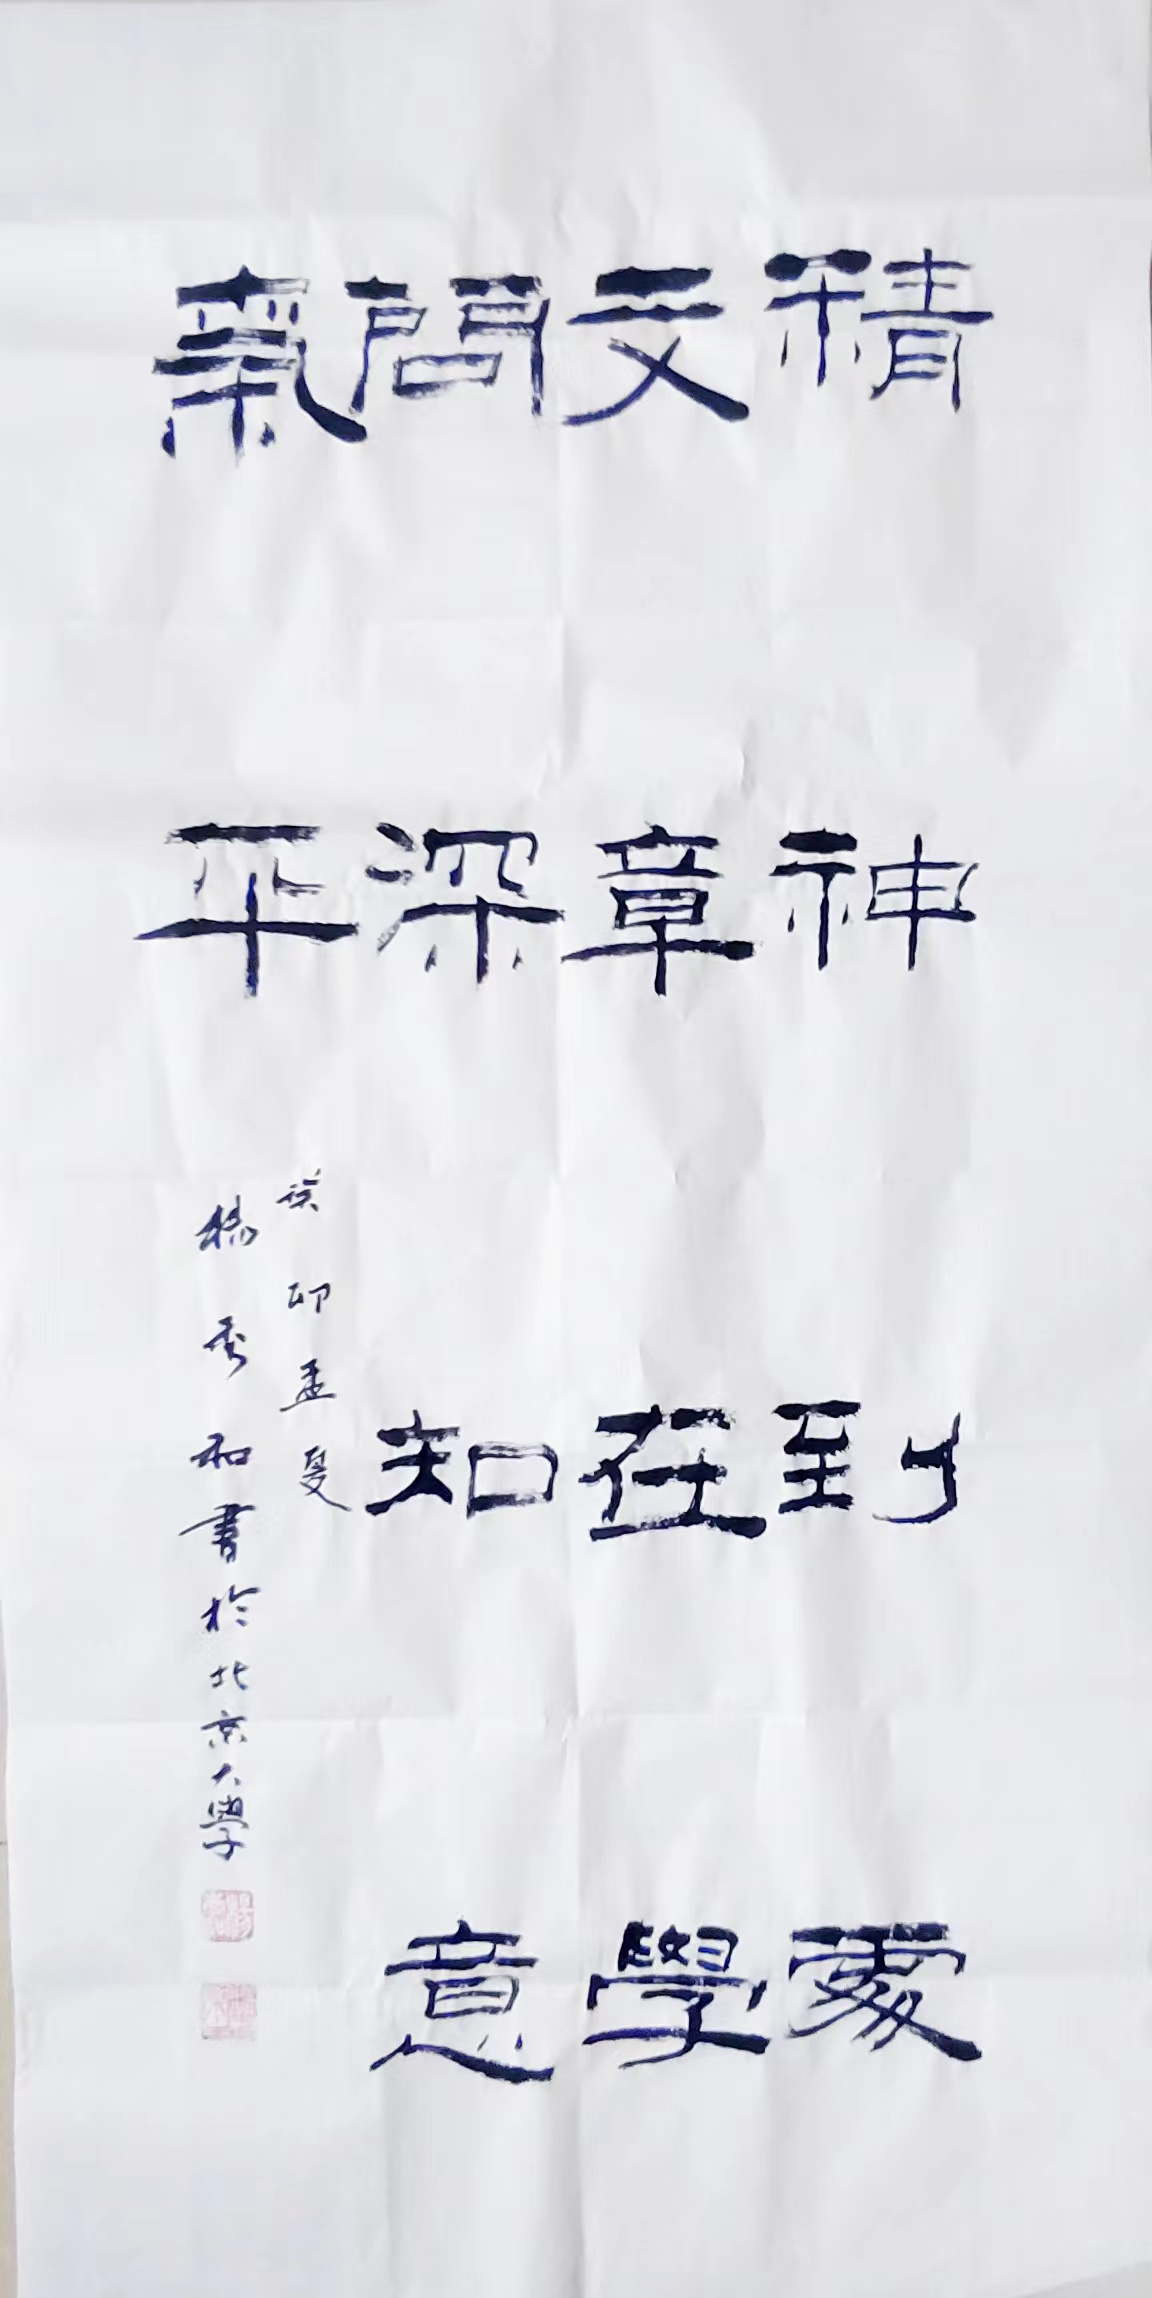 精神到處
文章在學
問深知意
氣平
癸卯孟夏
楊秀和書於北京大學